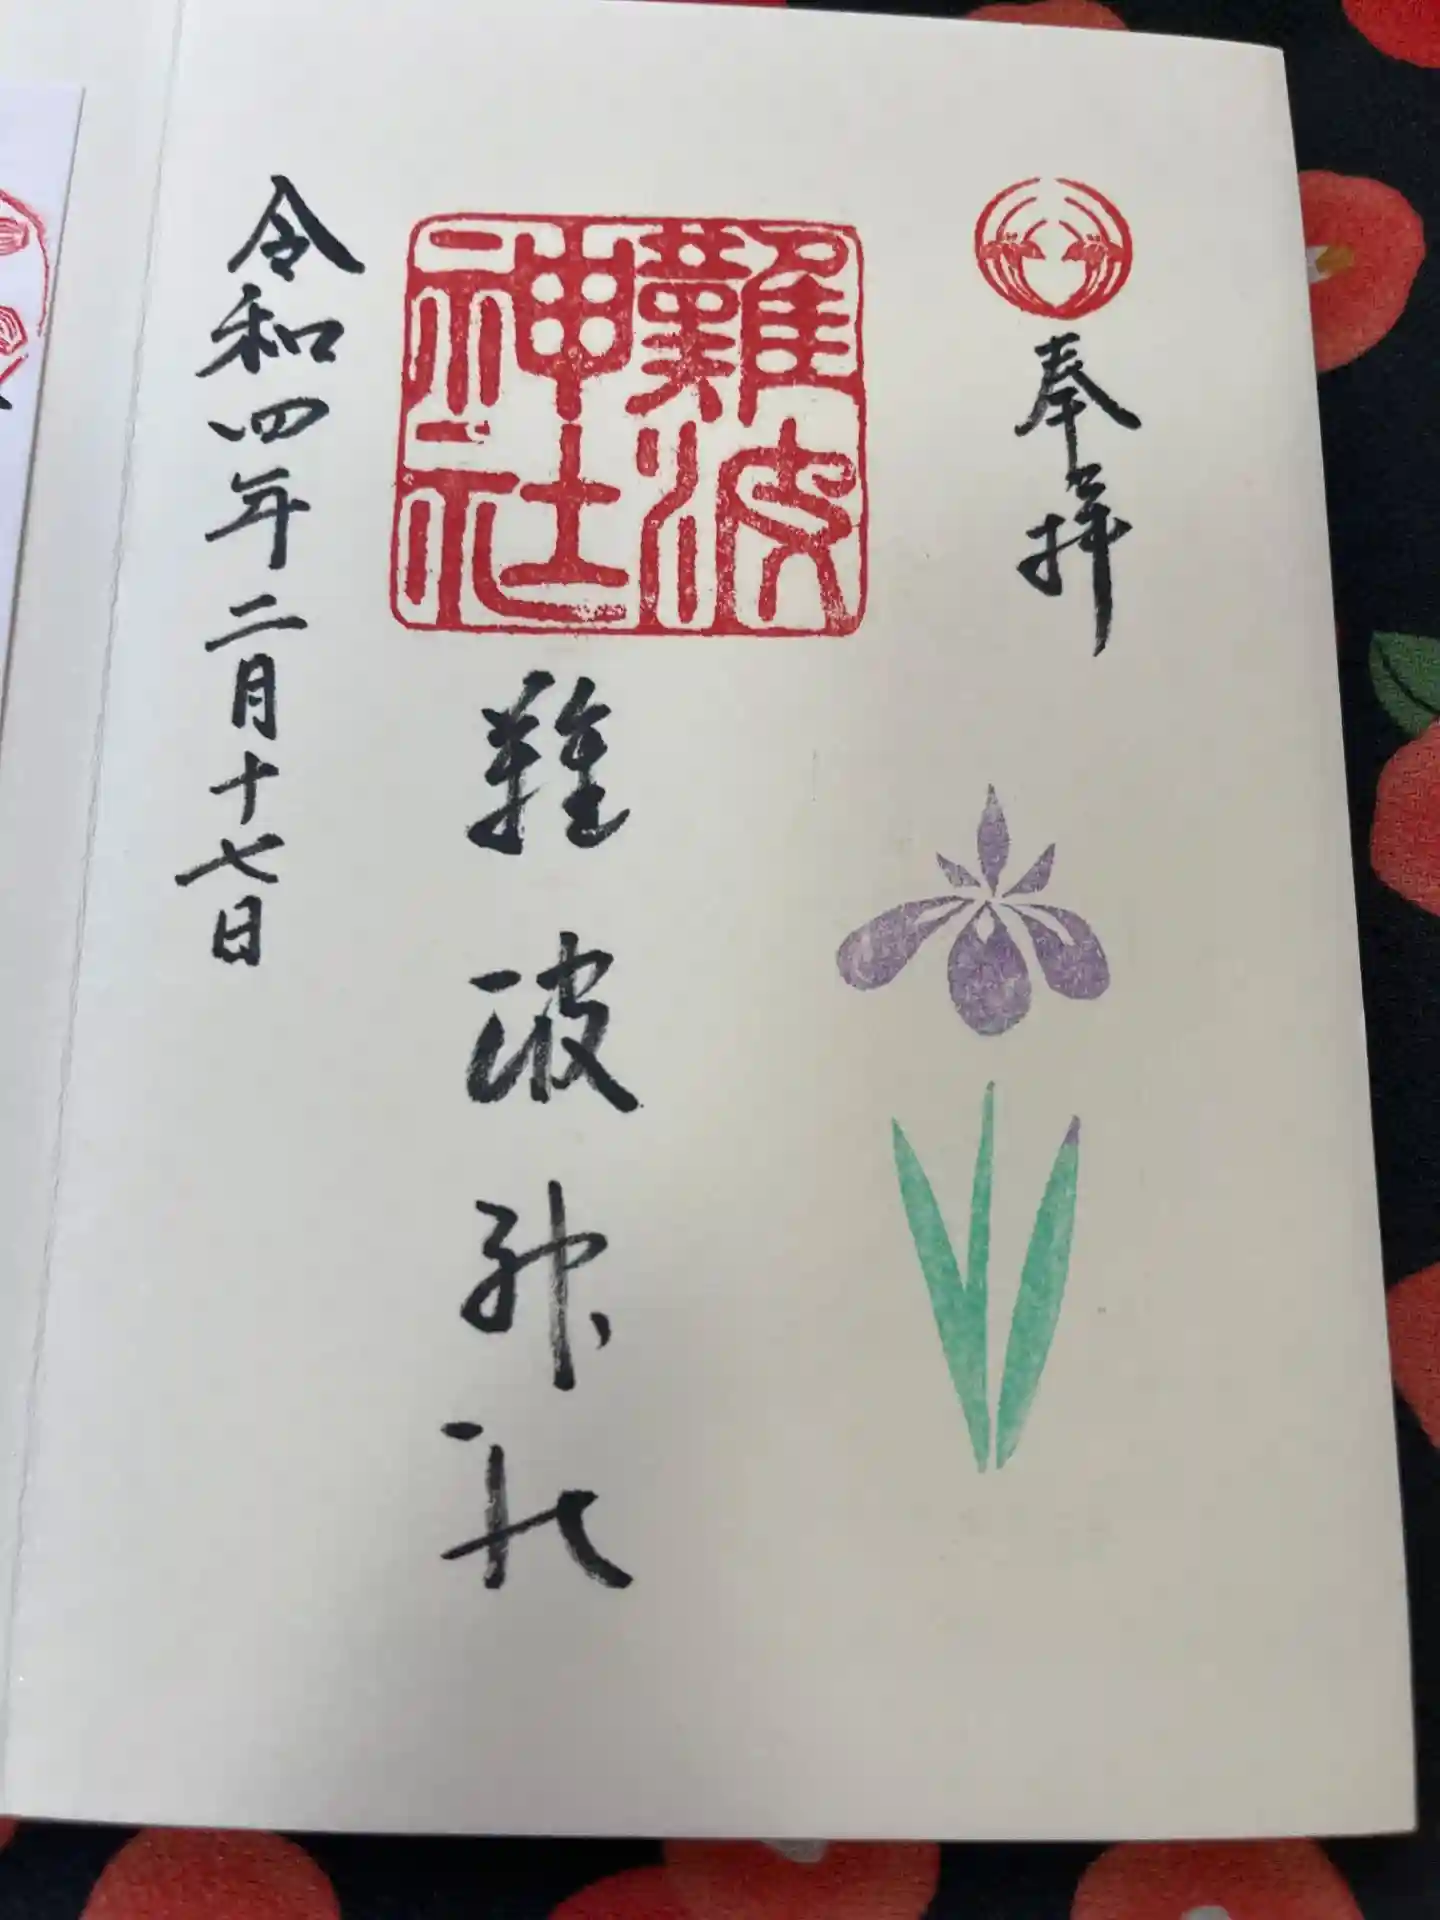 奉拝
難波神社
難波神社
令和四年二月十七日